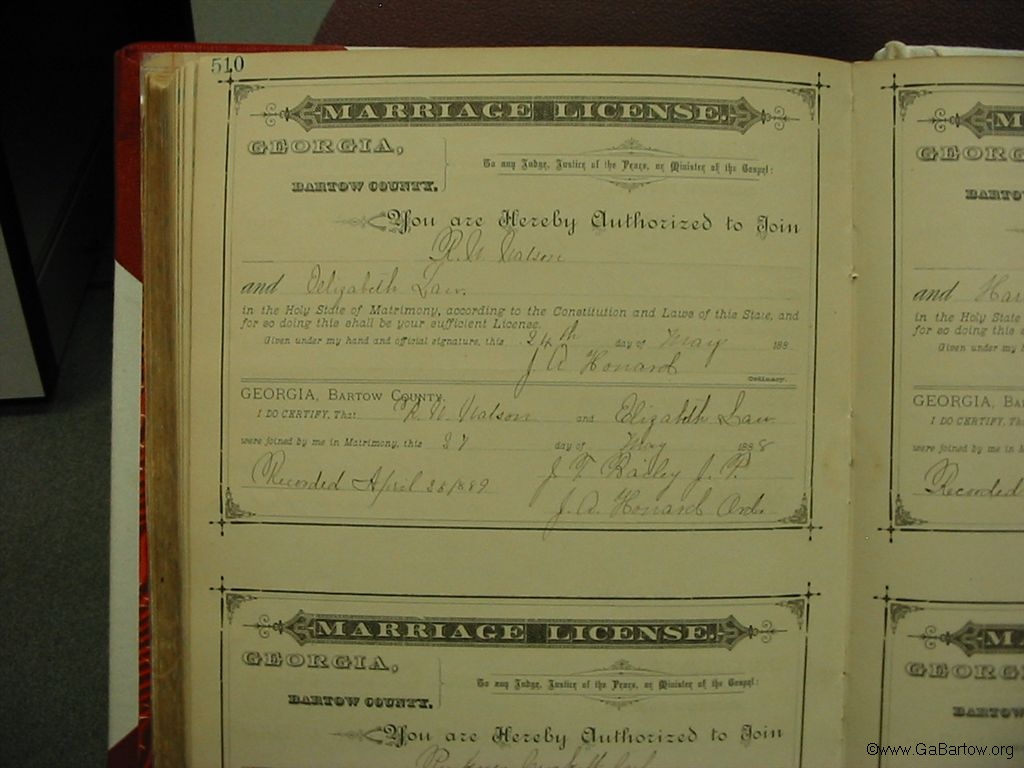 510
MARRIAGE LICENSE.
GEORGIA,
BARTOW COUNTY.
To any Judge, Justice of the Peace, or Minister of the Gospel:
You are Hereby Authorized to Join
R. W. Watson
and Elizabeth Law.
in the Holy State of Matrimony, according to the Constitution and Laws of this State, and
for so doing this shall be your sufficient License.
Given under my hand and official signature, this 24th day of May 188
J A Howard
Ordinary.
GEORGIA, BARTOW COUNTY.
I DO CERTIFY, That R. W. Watson and Elizabeth Law
were joined by me in Matrimony, this 27 day of May 1888
J. T. Bailey J. P.
Recorded April 25 1889
J. A. Howard Ord.
MARRIAGE LICENSE.
GEORGIA,
BARTOW COUNTY.
To any Judge, Justice of the Peace, or Minister of the Gospel:
You are Hereby Authorized to Join
M
GEORG
BARTO
and Har
in the Holy State
for so doing this
Given under my h
GEORGIA, BA
I DO CERTIFY, Tha
were joined by me in M
Recorded
M
GEORG
BARTOW
©www.GaBartow.org